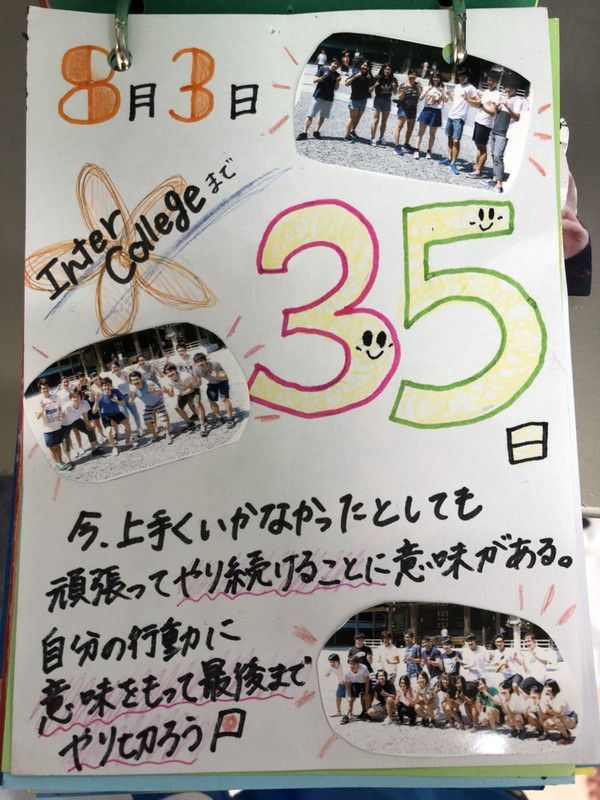 8月3日
Inter
Collegeまで
35
日
今、上手くいかなかったとしても
頑張ってやり続けることに意味がある。
自分の行動に
意味をもって最後まで
やり切ろう